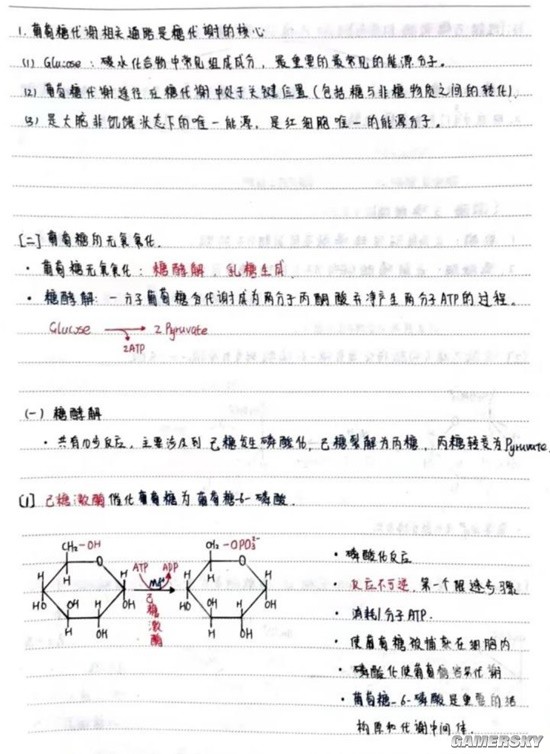 1. 葡萄糖代谢相关通路是糖代谢的核心
(1) Glucose：碳水化合物中常见组成成分，最重要的最常见的能源分子.
(2) 葡萄糖代谢途径在糖代谢中处于关键位置(包括糖与非糖物质之间的转化).
(3) 是大脑非饥饿状态下的唯一能源，是红细胞唯一的能源分子.
[二] 葡萄糖的无氧氧化.
• 葡萄糖无氧氧化：糖酵解，乳糖生成
• 糖酵解：一分子葡萄糖会代谢成为两分子丙酮酸并净产生两分子ATP的过程.
Glucose → 2 Pyruvate
2ATP
(一) 糖酵解
• 共有10步反应，主要涉及到己糖发生磷酸化，己糖裂解为丙糖，丙糖转变为Pyruvate
[1] 己糖激酶催化葡萄糖为葡萄糖-6-磷酸.
CH₂-OH
ATP ADP
Mg²⁺
己糖激酶
CH₂-OPO₃²⁻
H O H H OH H HO OH H OH
H O H H OH H HO OH H OH
• 磷酸化反应
• 反应不可逆，第一个限速步骤
• 消耗1分子ATP.
• 使葡萄糖被捕获在细胞内
• 磷酸化使葡萄糖容易代谢
• 葡萄糖-6-磷酸是重要的结
构原和代谢中间体.
GAMERSKY